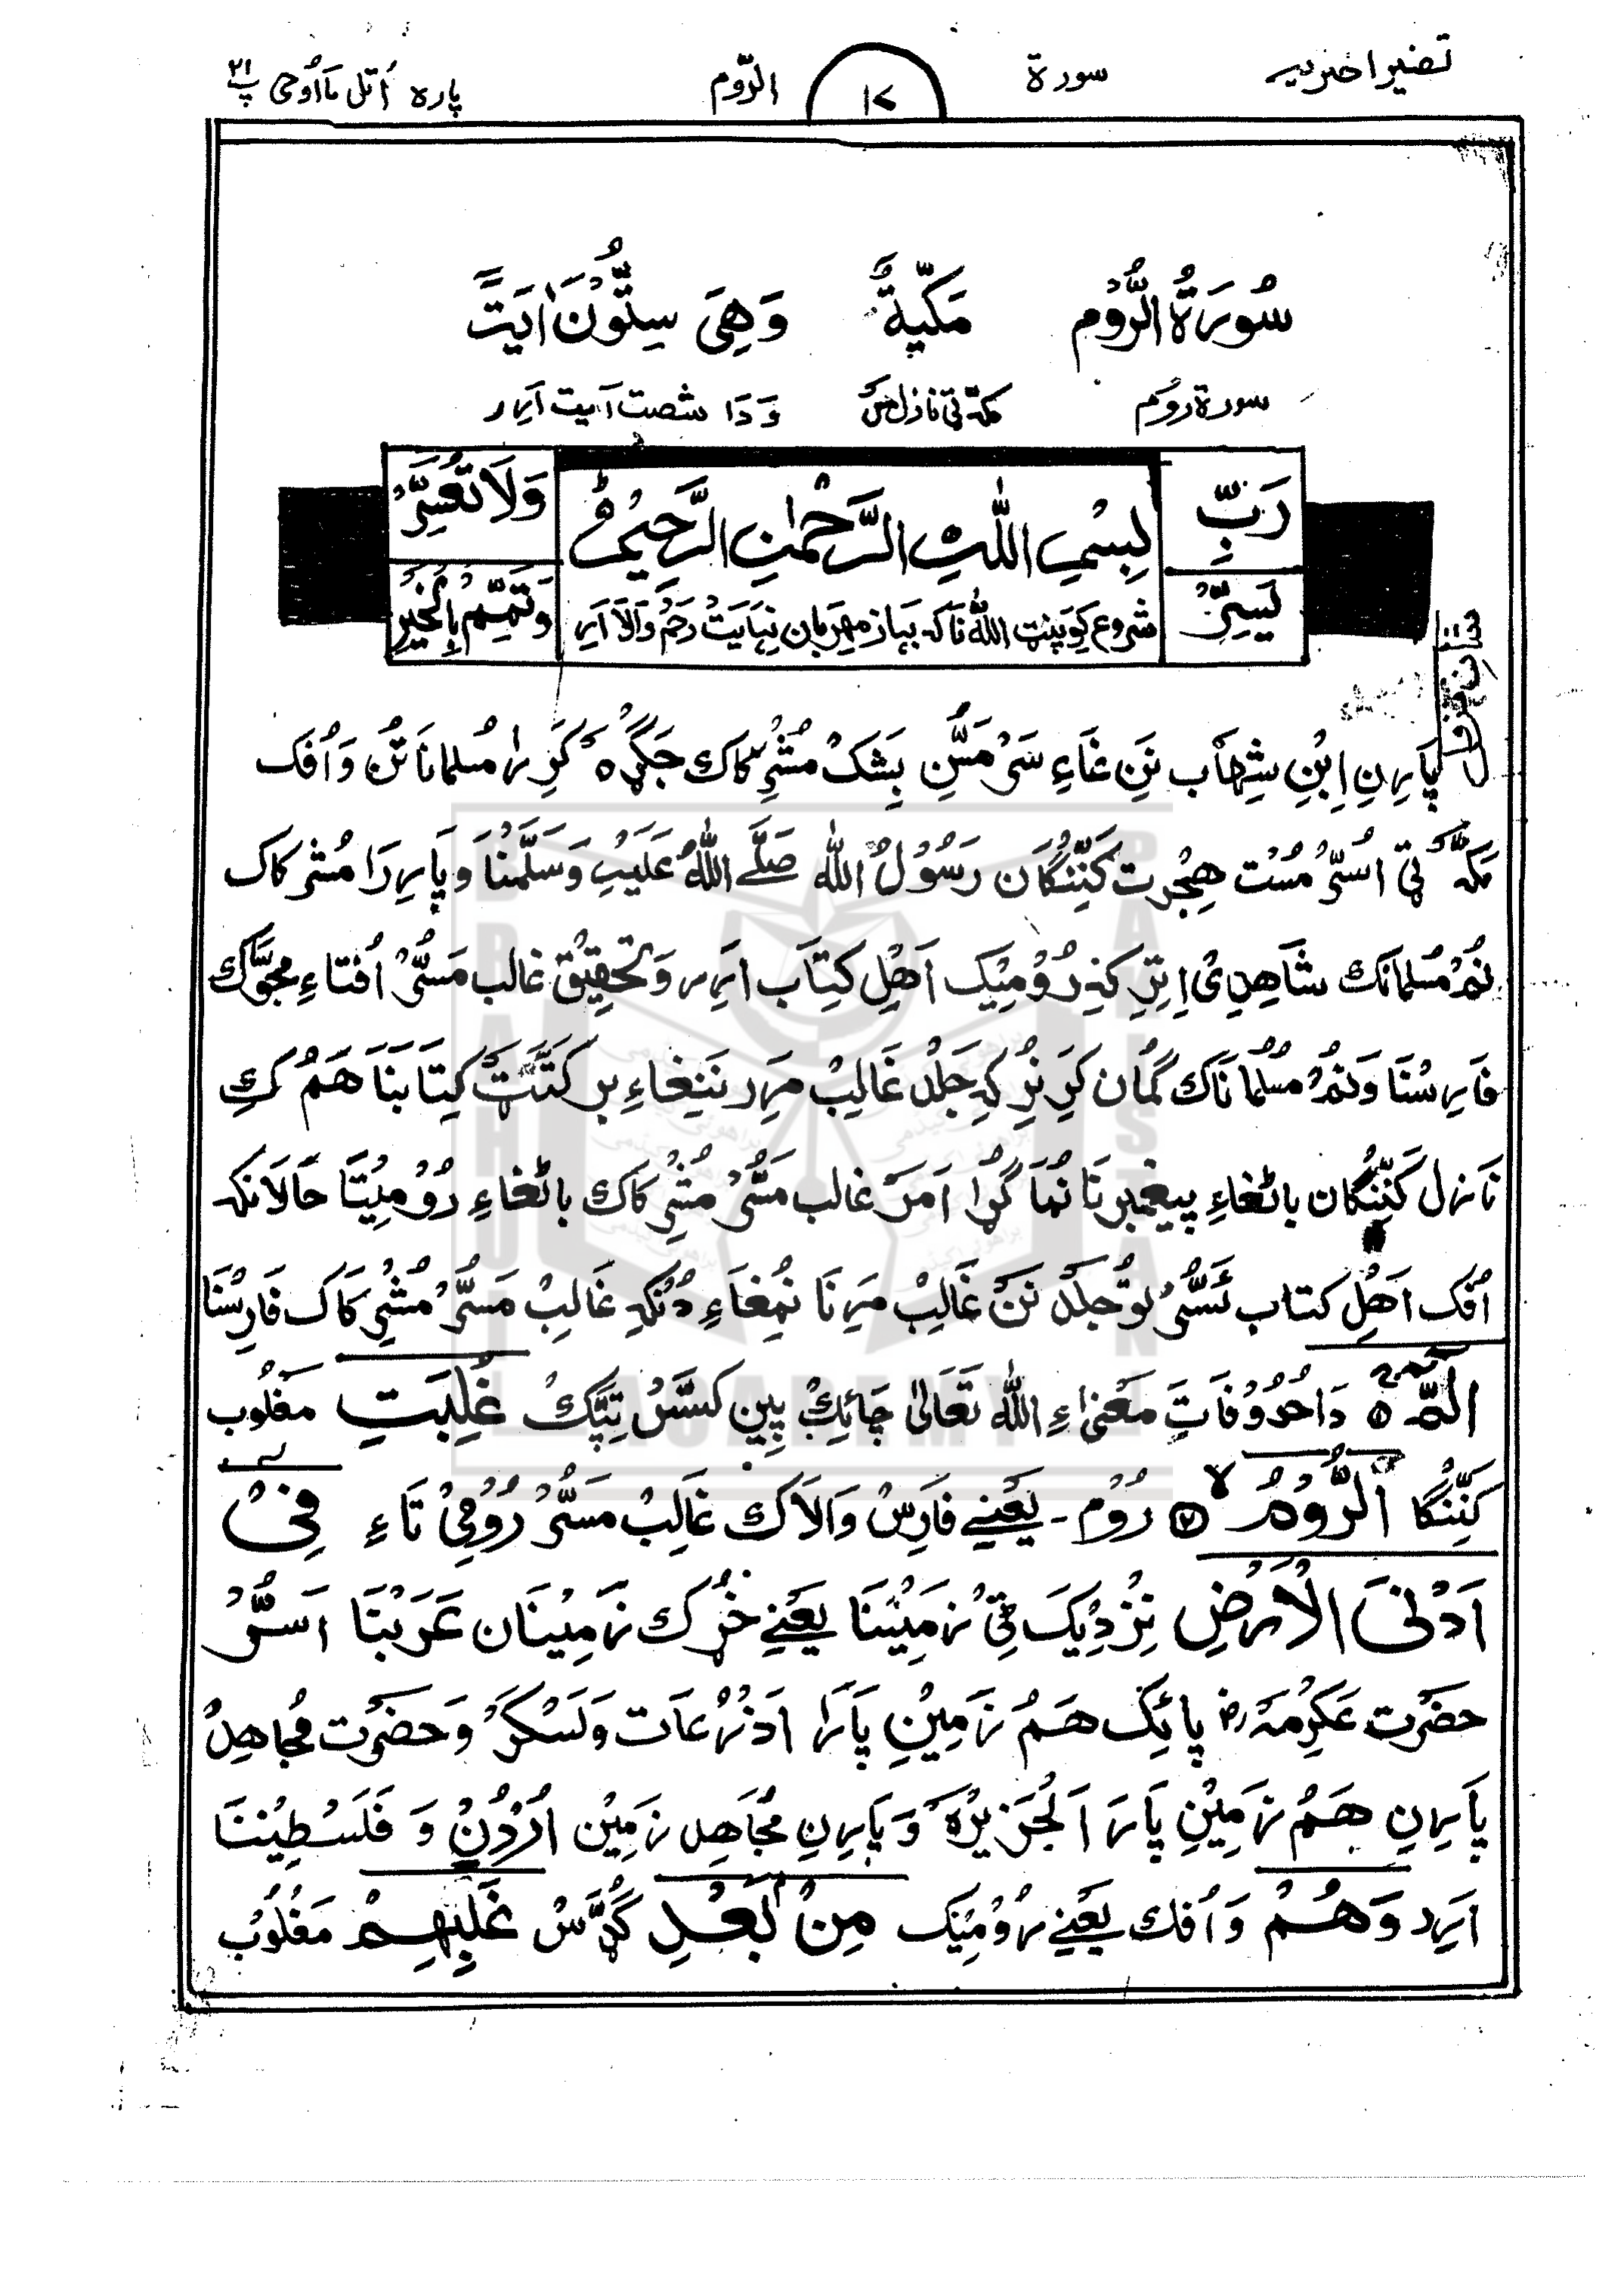 تفسیر اختریہ سورة ۱۷ الرّوم پارہ اُتل مَااُوحِیَ پ ۲۱
سُورَۃُ الرُّوم مَکِّیۃٌ وَھِیَ سِتُّونَ اٰیَتً
سورۃ رُوم مکہ ٹی نازل مَس وَ دَا شصت آیت اَرِر
رَبِّ بِسْمِ اللّٰہِ الرَّحْمٰنِ الرَّحِیْمِ وَلَا تُعَسِّرْ
یَسِّرْ شروع کِوَ پِنَٹ اللّٰہ نَاکہ بہاز مِہرَبان نِہَایَتْ رَحم وَالَا اَرِ وَتَمِّم بِالْخَیْرِ
شان نزول
پَارِنِ اِبْنِ شِہَاب نَن غَاءِ سَرْ مَسُّن بیشک مُشْرِکاک جَگڑہ کَرِرہ مُسلمانَا تٹن وَ اُفک
مَکّہ ٹی اَسُّرْ مُسْت ھِجْرت کَنِّنگان رَسُوْلُ اللّٰہ صَلَّے اللّٰہُ عَلَیہِ وَسَلَّمنَا وَ پَارِرَا مُشرکاک
نُم مُسلمانک شَاھِدِی اِتِرِ کہ رُوْمِیک اَھْلِ کِتَاب اَرِر وَ تحقِیْق غالب مَسُّرْ اُفتاءِ مجوّاک
فَارِسْنَا وَنُم مُسلمانَاک گُمان کَرِرِ کہ جَلْد غَالِبْ مَرِر نَنِغاءِ بَرکَتَٹ کِتَابنَا ھَمُ کہ
نَازل کَنِّنگان باٹغاءِ پیغمبر نَا نُمَا گڑا اَمَر غالب مَسُّرْ مُشرِکاک باٹغاءِ رُوْمِیتَا حَالَانکہ
اُفک اَھْلِ کتاب اَسُّر تو جلد نَنْ غَالِبْ مَرِنَا نُمِغَاءِ دُنکہ غَالِبْ مَسُّرْ مُشرِکَاک فَارِسْنَا
الٓمّٓ ۝ دَا حُرُوْفَاتَ مَعْنٰی ءِ اللّٰہ تَعَالٰی چَائِکْ پِین کسَّسْ تِپَّکْ غُلِبَتِ مَغلُوب
کَنِّنگا الرُّوْمُ ۝ رُوْم ۔ یَعْنِے فارِسْ وَالَاک غَالِبْ مَسُّرْ رُوْمِیْ تَاءِ فِیْ
اَدْنَی الْاَرْضِ نِزْدِیکَ ٹی زَمِیْنَا یَعْنِے خُڑک زَمِیْنَان عَرَبْنَا اَسُّرْ
حضرت عَکرِمَہ رض پائک ھَمُ زَمِیْنِ پَارَا اَذْرُعَات وَلَسْکَرَ وَحضرت مُجَاھِدْ
پَارِنِ ھَمُ زَمِیْنِ پَارَ اَلْجَزِیْرَہ وَ پَارِنِ مُجَاھِد زَمِیْن اُرْدُنْ وَ فَلَسْطِیْننَا
اَرِد وَھُمْ وَ اُفک یَعْنِے رُوْمِیک مِنْ بَعْدِ کُڑَّسْ غَلَبِهِمْ مَغْلُوْب